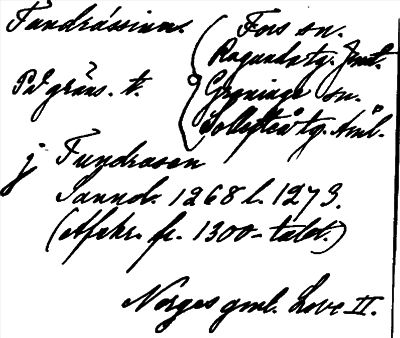 Fundråssinna.
På gräns. t.
Fors sn.
Ragunda tg. Jmtl.
Graninge sn.
Sollefteå tg. Åml.
j Fundrasen
Sannol. 1268 l. 1273.
(Afskr. fr. 1300-talet.)
Norges gml. Love II.